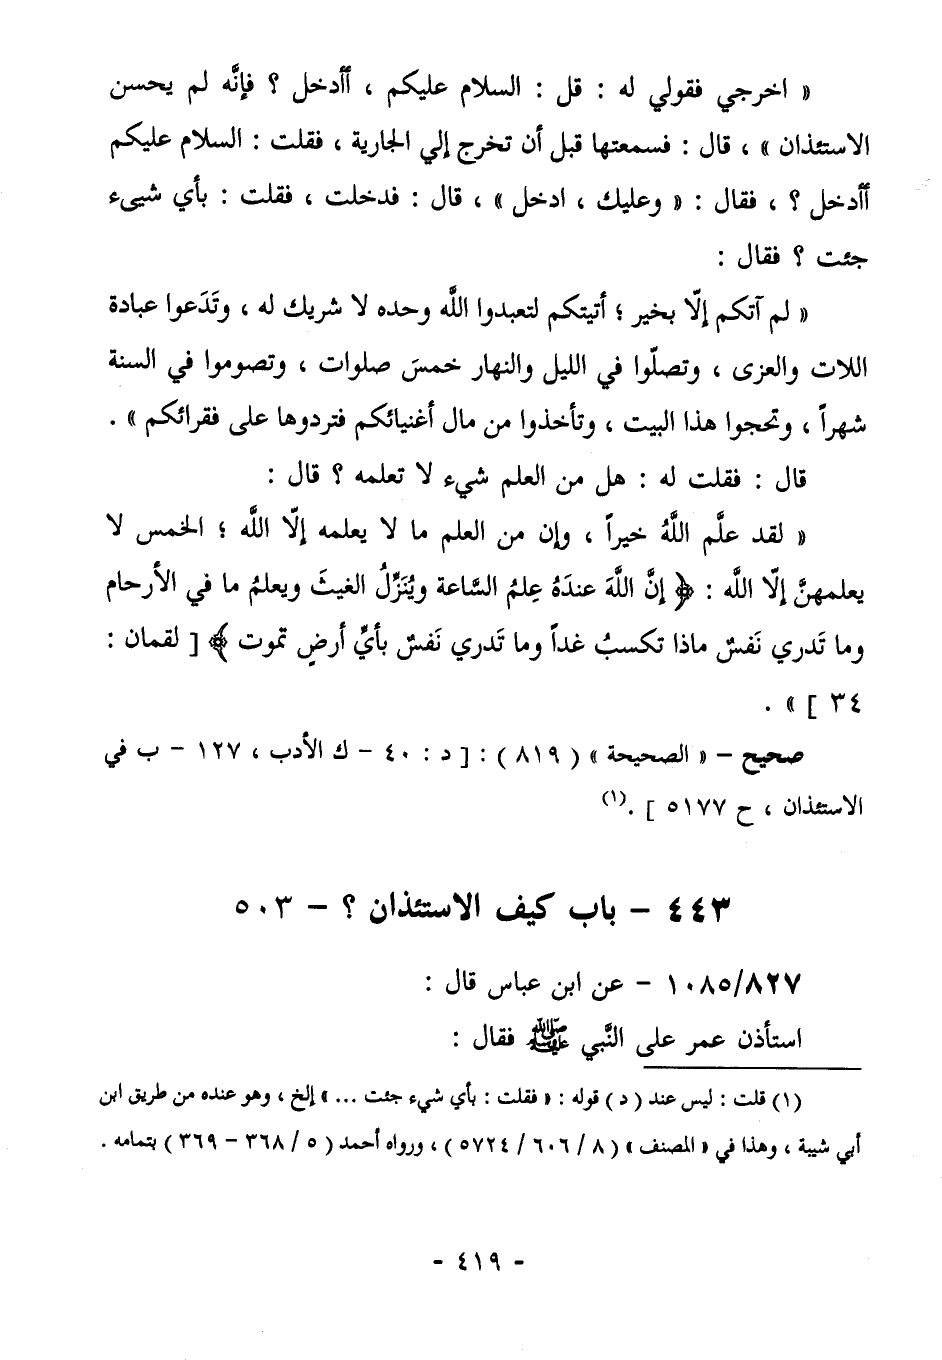 « اخرجي فقولي له : قل : السلام عليكم ، أأدخل ؟ فإنَّه لم يحسن
الاستئذان » ، قال : فسمعتها قبل أن تخرج إلي الجارية ، فقلت : السلام عليكم
أأدخل ؟ ، فقال : « وعليك ، ادخل » ، قال : فدخلت ، فقلت : بأي شيىء
جئت ؟ فقال :
« لم آتكم إلّا بخير ؛ أتيتكم لتعبدوا اللَّه وحده لا شريك له ، وتَدَعوا عبادة
اللات والعزى ، وتصلّوا في الليل والنهار خمسَ صلوات ، وتصوموا في السنة
شهراً ، وتحجوا هذا البيت ، وتأخذوا من مال أغنيائكم فتردوها على فقرائكم » .
قال : فقلت له : هل من العلم شيء لا تعلمه ؟ قال :
« لقد علَّم اللَّهُ خيراً ، وإن من العلم ما لا يعلمه إلّا اللَّه ؛ الخمس لا
يعلمهنَّ إلّا اللَّه : ﴿ إنَّ اللَّهَ عندَهُ عِلمُ السَّاعة ويُنَزِّلُ الغيثَ ويعلمُ ما في الأرحام
وما تَدري نَفسٌ ماذا تكسبُ غداً وما تَدري نَفسٌ بأيِّ أرضٍ تموت ﴾ [ لقمان :
٣٤ ] » .
صحيح – « الصحيحة » ( ٨١٩ ) : [ د : ٤٠ – ك الأدب ، ١٢٧ – ب في
الاستئذان ، ح ٥١٧٧ ] .(١)
٤٤٣ – باب كيف الاستئذان ؟ – ٥٠٣
١٠٨٥/٨٢٧ – عن ابن عباس قال :
استأذن عمر على النَّبي ﷺ فقال :
(١) قلت : ليس عند ( د ) قوله : « فقلت : بأي شيء جئت ... » إلخ ، وهو عنده من طريق ابن
أبي شيبة ، وهذا في « المصنف » ( ٨ / ٦٠٦ / ٥٧٢٤ ) ، ورواه أحمد ( ٥ / ٣٦٨ – ٣٦٩ ) بتمامه .
- ٤١٩ -